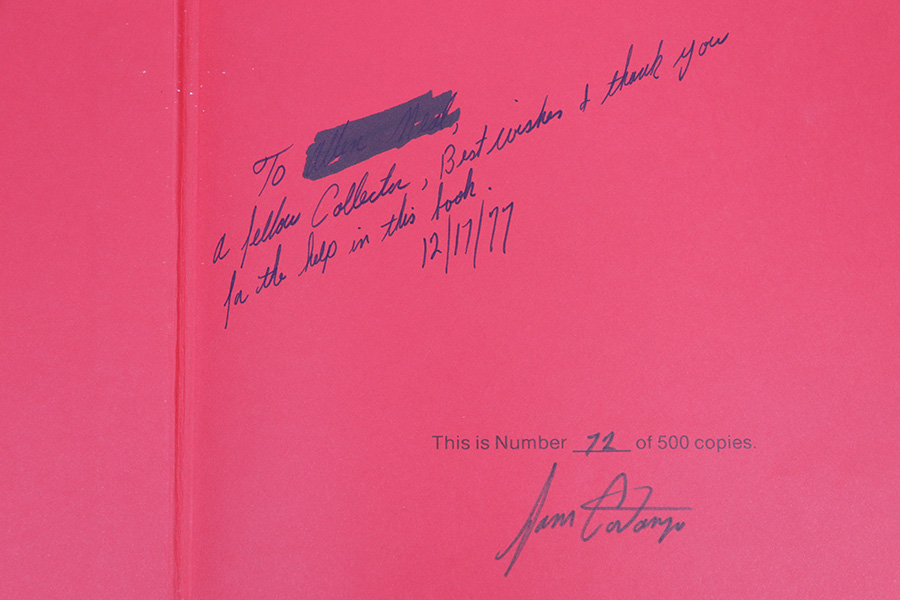 To
a fellow Collector, Best wishes & thank you
for the help in this book.
12/17/77
This is Number 72 of 500 copies.